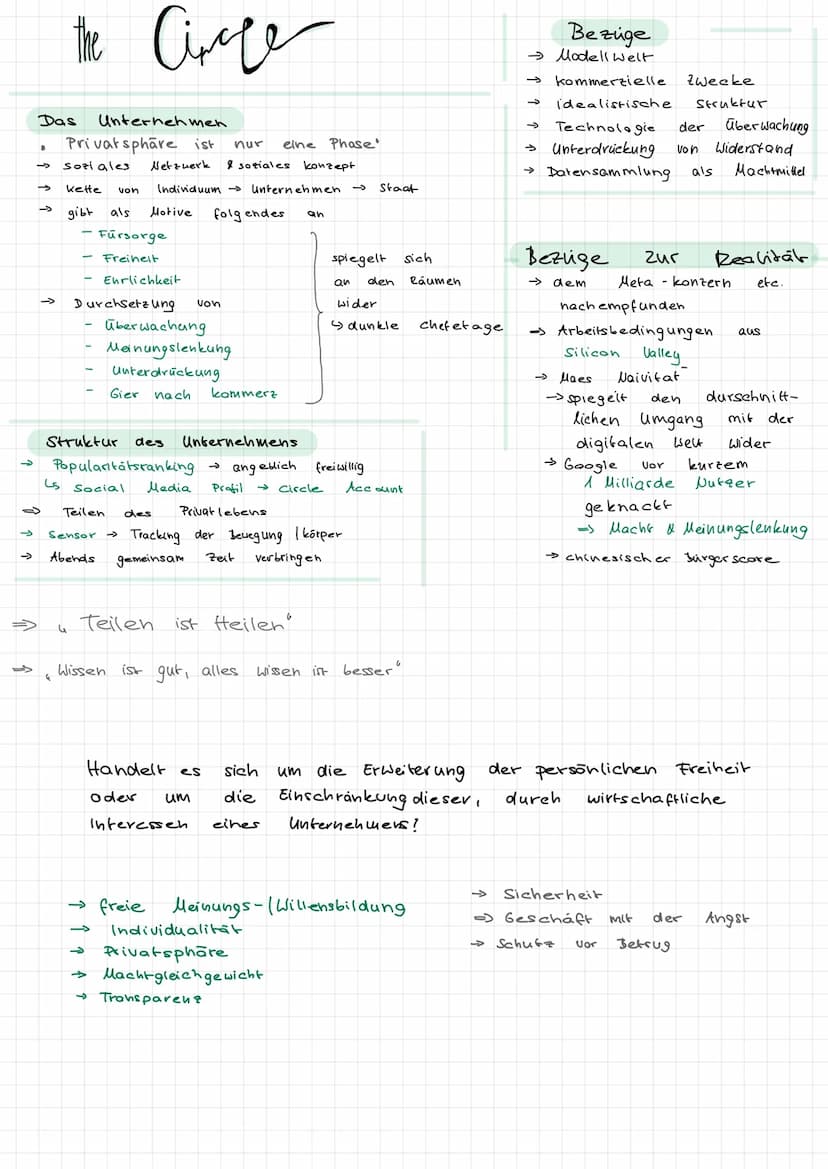 the Circle
Das Unternehmen
"Privatsphäre ist nur eine Phase"
→ soziales Netzwerk & soziales konzept
→ kette von Individuum → Unternehmen → Staat
→ gibt als Motive folgendes an
- Fürsorge
- Freiheit
- Ehrlichkeit
→ Durchsetzung von
- Überwachung
- Meinungslenkung
- Unterdrückung
- Gier nach kommerz
spiegelt sich
an den Räumen
wider
↳ dunkle chefetage
Struktur des Unternehmens
→ Popularitätsranking → angeblich freiwillig
↳ Social Media Profil → Circle Account
⇒ Teilen des Privatlebens
→ Sensor → Tracking der Bewegung / körper
→ Abends gemeinsam Zeit verbringen
⇒ "Teilen ist Heilen"
⇒ "Wissen ist gut, alles wissen ist besser"
Bezüge
→ Modellwelt
→ kommerzielle Zwecke
→ idealistische Struktur
→ Technologie der Überwachung
→ Unterdrückung von Widerstand
→ Datensammlung als Machtmittel
Bezüge zur Realität
→ dem Meta-konzern etc.
nachempfunden
→ Arbeitsbedingungen aus
Silicon Valley
→ Maes Naivität
→ spiegelt den durschnitt-
lichen Umgang mit der
digitalen Welt wider
→ Google vor kurzem
1 Milliarde Nutzer
geknackt
⇒ Macht & Meinungslenkung
→ chinesischer Bürgerscore
Handelt es sich um die Erweiterung der persönlichen Freiheit
oder um die Einschränkung dieser, durch wirtschaftliche
Interessen eines Unternehmens?
→ freie Meinungs-/Willensbildung
→ Individualität
→ Privatsphäre
→ Machtgleichgewicht
→ Transparenz
→ Sicherheit
⇒ Geschäft mit der Angst
→ Schutz vor Betrug